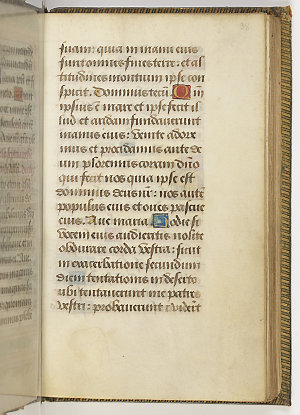 suam: quia in manu eius
sunt omnes fines terre: et al
titudines montium ipse con
spicit. Dominus tecũ. Qm̃
ipsius ẽ mare et ipse fecit il
lud et aridam fundauerunt
manus eius: venite adore
mus et procidamus ante de
um ploremus coram dño
qui fecit nos quia ipse est
dominus deus nr̃: nos autẽ
populus eius et oues pascue
eius. Aue maria. Hodie si
vocem eius audieritis nolite
obdurare corda vestra: sicut
in exacerbatione secundum
diem temtationis in deserto
ubi temtauerunt me patres
vestri: probauerunt et viderũt